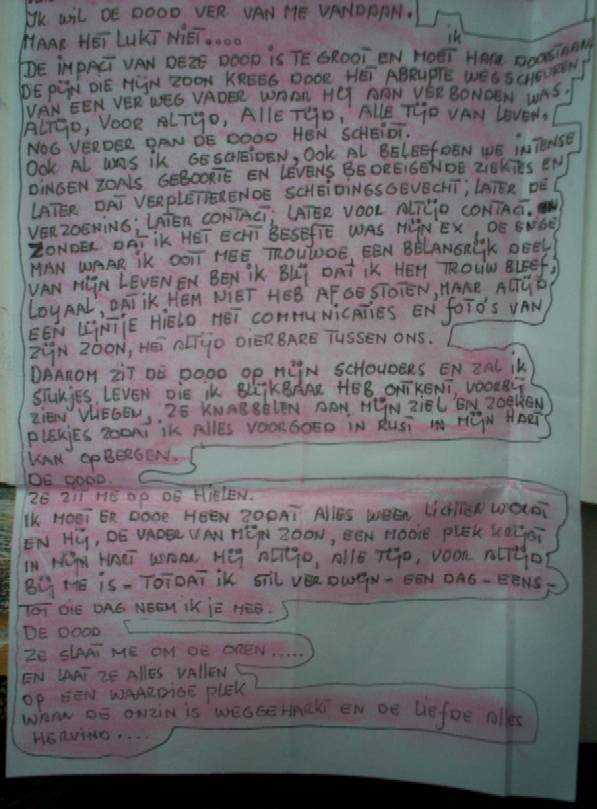 IK WIL DE DOOD VER VAN ME VANDAAN.
MAAR HET LUKT NIET.... ik
DE IMPACT VAN DEZE DOOD IS TE GROOT EN MOET HAAR DOORSTAAN
DE PIJN DIE MIJN ZOON KREEG DOOR HET ABRUPTE WEGSCHEUREN
VAN EEN VER WEG VADER WAAR HIJ AAN VERBONDEN WAS.
ALTIJD, VOOR ALTIJD, ALLE TIJD, ALLE TIJD VAN LEVEN.
NOG VERDER DAN DE DOOD HEN SCHEIDT.
OOK AL WAS IK GESCHEIDEN, OOK AL BELEEFDEN WE INTENSE
DINGEN ZOALS GEBOORTE EN LEVENS BEDREIGENDE ZIEKTES EN
LATER DAT VERPLETTERENDE SCHEIDINGSGEVECHT; LATER DE
VERZOENING; LATER CONTACT; LATER VOOR ALTIJD CONTACT.
ZONDER DAT IK HET ECHT BESEFTE WAS MIJN EX, DE ENIGE
MAN WAAR IK OOIT MEE TROUWDE, EEN BELANGRIJK DEEL
VAN MIJN LEVEN EN BEN IK BLIJ DAT IK HEM TROUW BLEEF,
LOYAAL, DAT IK HEM NIET HEB AFGESTOTEN, MAAR ALTIJD
EEN LIJNTJE HIELD MET COMMUNICATIES EN FOTO'S VAN
ZIJN ZOON, HET ALTIJD DIERBARE TUSSEN ONS.
DAAROM ZIT DE DOOD OP MIJN SCHOUDERS EN ZAL IK
STUKJES LEVEN DIE IK BLIJKBAAR HEB ONTKENT, VOORBIJ
ZIEN VLIEGEN, ZE KNABBELEN AAN MIJN ZIEL EN ZOEKEN
PLEKJES ZODAT IK ALLES VOORGOED IN RUST IN MIJN HART
KAN OPBERGEN.
DE DOOD.
ZE ZIT ME OP DE HIELEN.
IK MOET ER DOOR HEEN ZODAT ALLES WEER LICHTER WORDT
EN HIJ, DE VADER VAN MIJN ZOON, EEN MOOIE PLEK KRIJGT
IN MIJN HART WAAR HIJ ALTIJD, ALLE TIJD, VOOR ALTIJD
BIJ ME IS - TOTDAT IK STIL VERDWIJN - EEN DAG - EENS -
TOT DIE DAG NEEM IK JE MEE.
DE DOOD
ZE SLAAT ME OM DE OREN.....
EN LAAT ZE ALLES VALLEN
OP EEN WAARDIGE PLEK
WAAR DE ONZIN IS WEGGEHARKT EN DE LIEFDE ALLES
HERVIND....